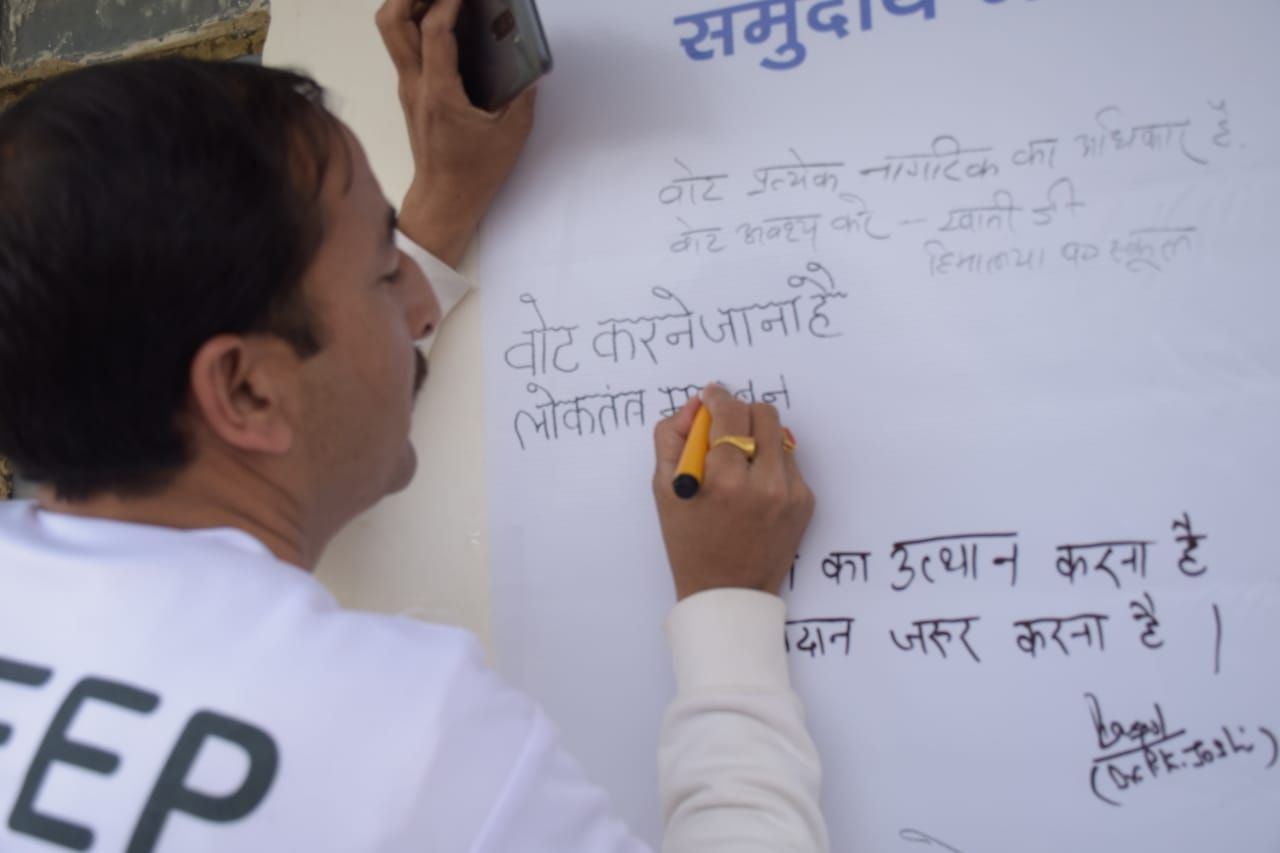 समुदाय
वोट प्रत्येक नागरिक का अधिकार है.
वोट अवश्य करे - स्वाती जी
हिमालया प० स्कूल
वोट करने जाना है
लोकतंत्र बन
का उत्थान करना है
दान जरुर करना है ।
(Dr P.K. Joshi)
EEP